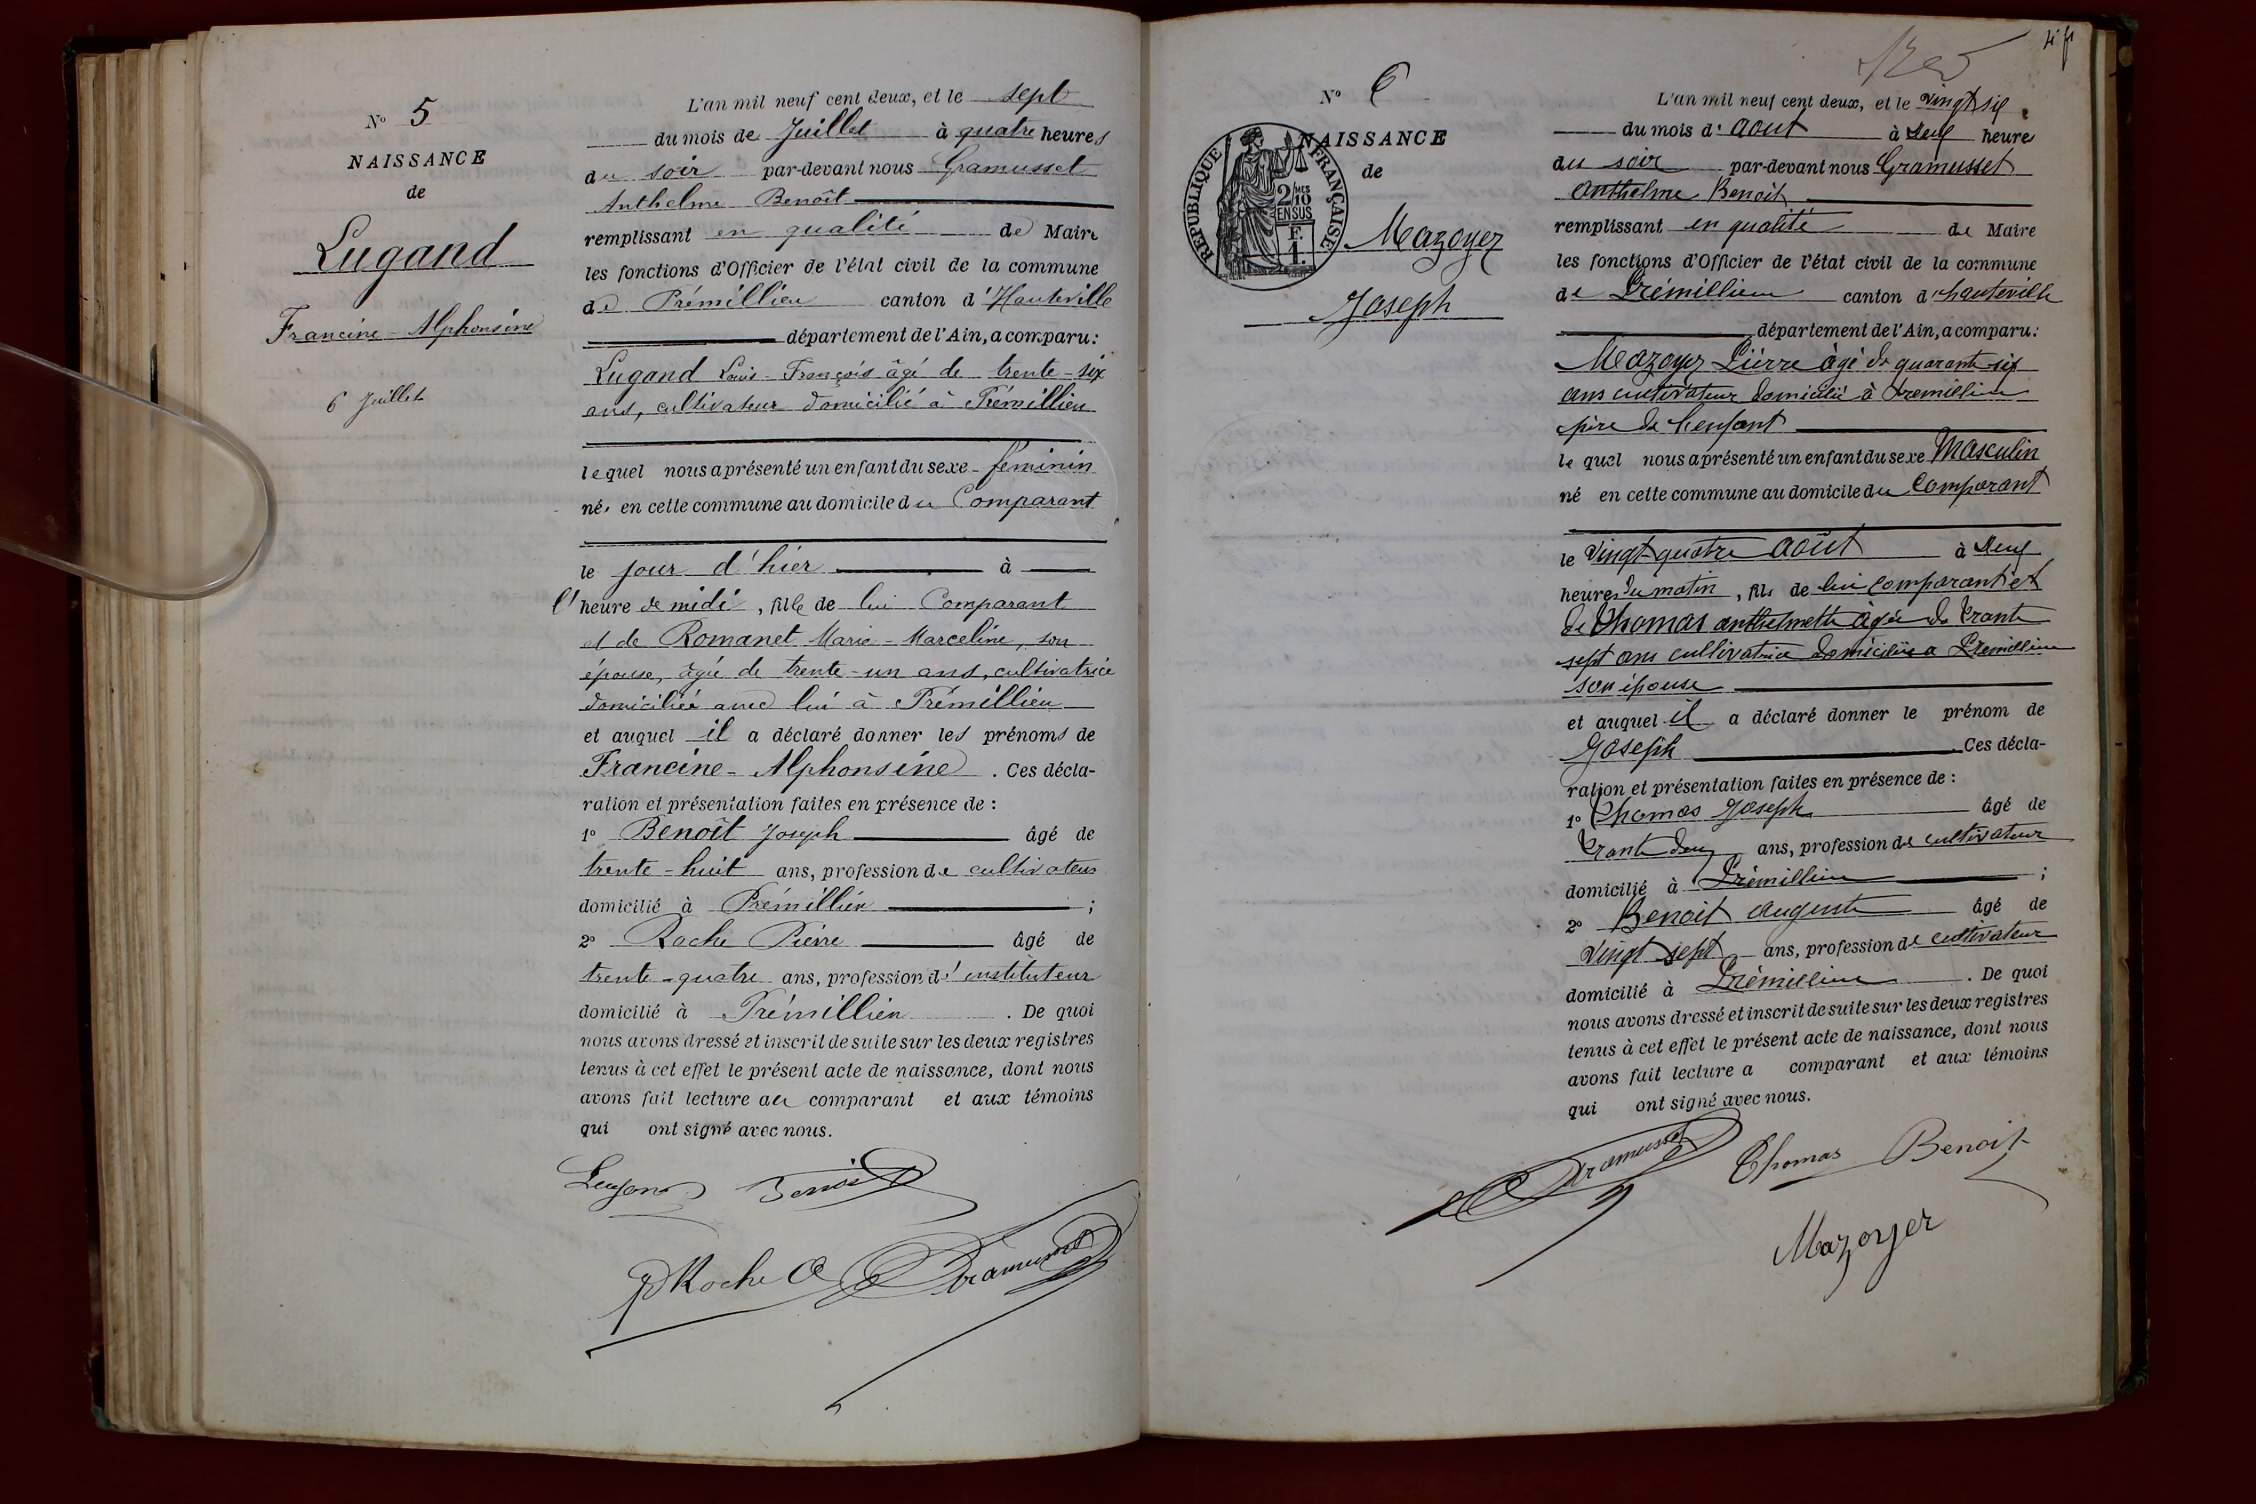 N° 5
NAISSANCE
de
Lugand
Francine-Alphonsine
6 Juillet
L'an mil neuf cent deux, et le sept
du mois de Juillet à quatre heures
du soir par-devant nous Gramusset
Anthelme Benoît
remplissant en qualité de Maire
les fonctions d'Officier de l'état civil de la commune
de Prémillieu canton d'Hauteville
département de l'Ain, a comparu:
Lugand Louis-François âgé de trente-six
ans, cultivateur domicilié à Prémillieu
lequel nous a présenté un enfant du sexe féminin
né, en cette commune au domicile du Comparant
le jour d'hier à
l'heure de midi, fille de lui Comparant
et de Romanet Marie-Marceline, son
épouse, âgée de trente-un ans, cultivatrice
domiciliée avec lui à Prémillieu
et auquel il a déclaré donner les prénoms de
Francine-Alphonsine. Ces décla-
ration et présentation faites en présence de :
1° Benoît Joseph âgé de
trente-huit ans, profession de cultivateur
domicilié à Prémillieu ;
2° Roche Pierre âgé de
trente-quatre ans, profession d'instituteur
domicilié à Prémillieu. De quoi
nous avons dressé et inscrit de suite sur les deux registres
tenus à cet effet le présent acte de naissance, dont nous
avons fait lecture au comparant et aux témoins
qui ont signé avec nous.
Lugand Benoit
P Roche Gramusset
4 f
N° 6
NAISSANCE
de
RÉPUBLIQUE FRANÇAISE
2/10 MES
EN SUS
F.
1.
Mazoyer
Joseph
L'an mil neuf cent deux, et le vingt six
du mois d'aout à neuf heures
du soir par-devant nous Gramusset
Anthelme Benoit
remplissant en qualité de Maire
les fonctions d'Officier de l'état civil de la commune
de Prémillieu canton d'hauteville
département de l'Ain, a comparu:
Mazoyer Pierre âgé de quarante six
ans cultivateur domicilié à Premillieu
père de l'enfant
le quel nous a présenté un enfant du sexe Masculin
né en cette commune au domicile du Comparant
le Vingt quatre août à neuf
heures du matin, fils de lui comparant et
de Thomas anthelmette âgée de trante
sept ans cultivatrice domiciliée a Prémillieu
son épouse
et auquel il a déclaré donner le prénom de
Joseph. Ces décla-
ration et présentation faites en présence de :
1° Thomas Joseph âgé de
trante deux ans, profession de cultivateur
domicilié à Prémillieu ;
2° Benoit auguste âgé de
vingt sept ans, profession de cultivateur
domicilié à Prémillieu. De quoi
nous avons dressé et inscrit de suite sur les deux registres
tenus à cet effet le présent acte de naissance, dont nous
avons fait lecture a comparant et aux témoins
qui ont signé avec nous.
Gramusset Thomas Benoit
Mazoyer